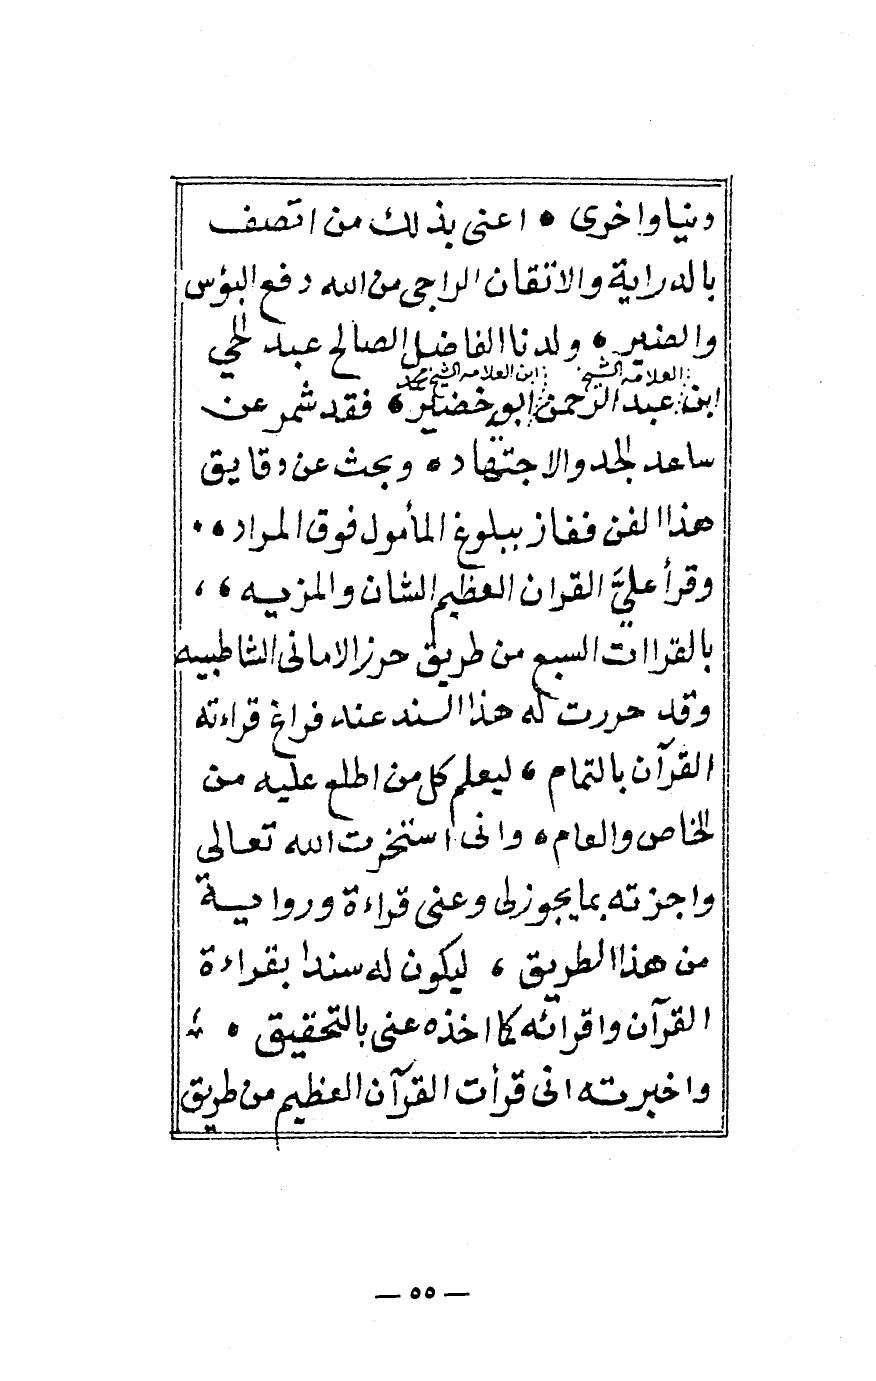 دنيا واخرى • اعنى بذلك من اتصف
بالدراية والاتقان الراجى من الله دفع البؤس
والضير • ولدنا الفاضل الصالح عبد الحي
العلامه الشيخ ابن العلامه الشيخ محمد
ابن عبد الرحمن ابو خضير • فقد شمر عن
ساعد الجد والاجتهاد • وبحث عن دقايق
هذا الفن ففاز ببلوغ المأمول فوق المراد • •
وقرأ عليَّ القران العظيم الشان والمزيه ، ،
بالقراات السبع من طريق حرز الامانى الشاطبيه
وقد حررت له هذا السند عند فراغ قراءته
القرآن بالتمام ، ليعلم كل من اطلع عليه من
الخاص والعام • وانى استخرت الله تعالى
واجزته بما يجوز لى وعنى قراءة ورواية
من هذا الطريق ، ليكون له سندا بقراءة
القرآن واقرائه كما اخذه عنى بالتحقيق •
واخبرته انى قرأت القرآن العظيم من طريق
— ٥٥ —